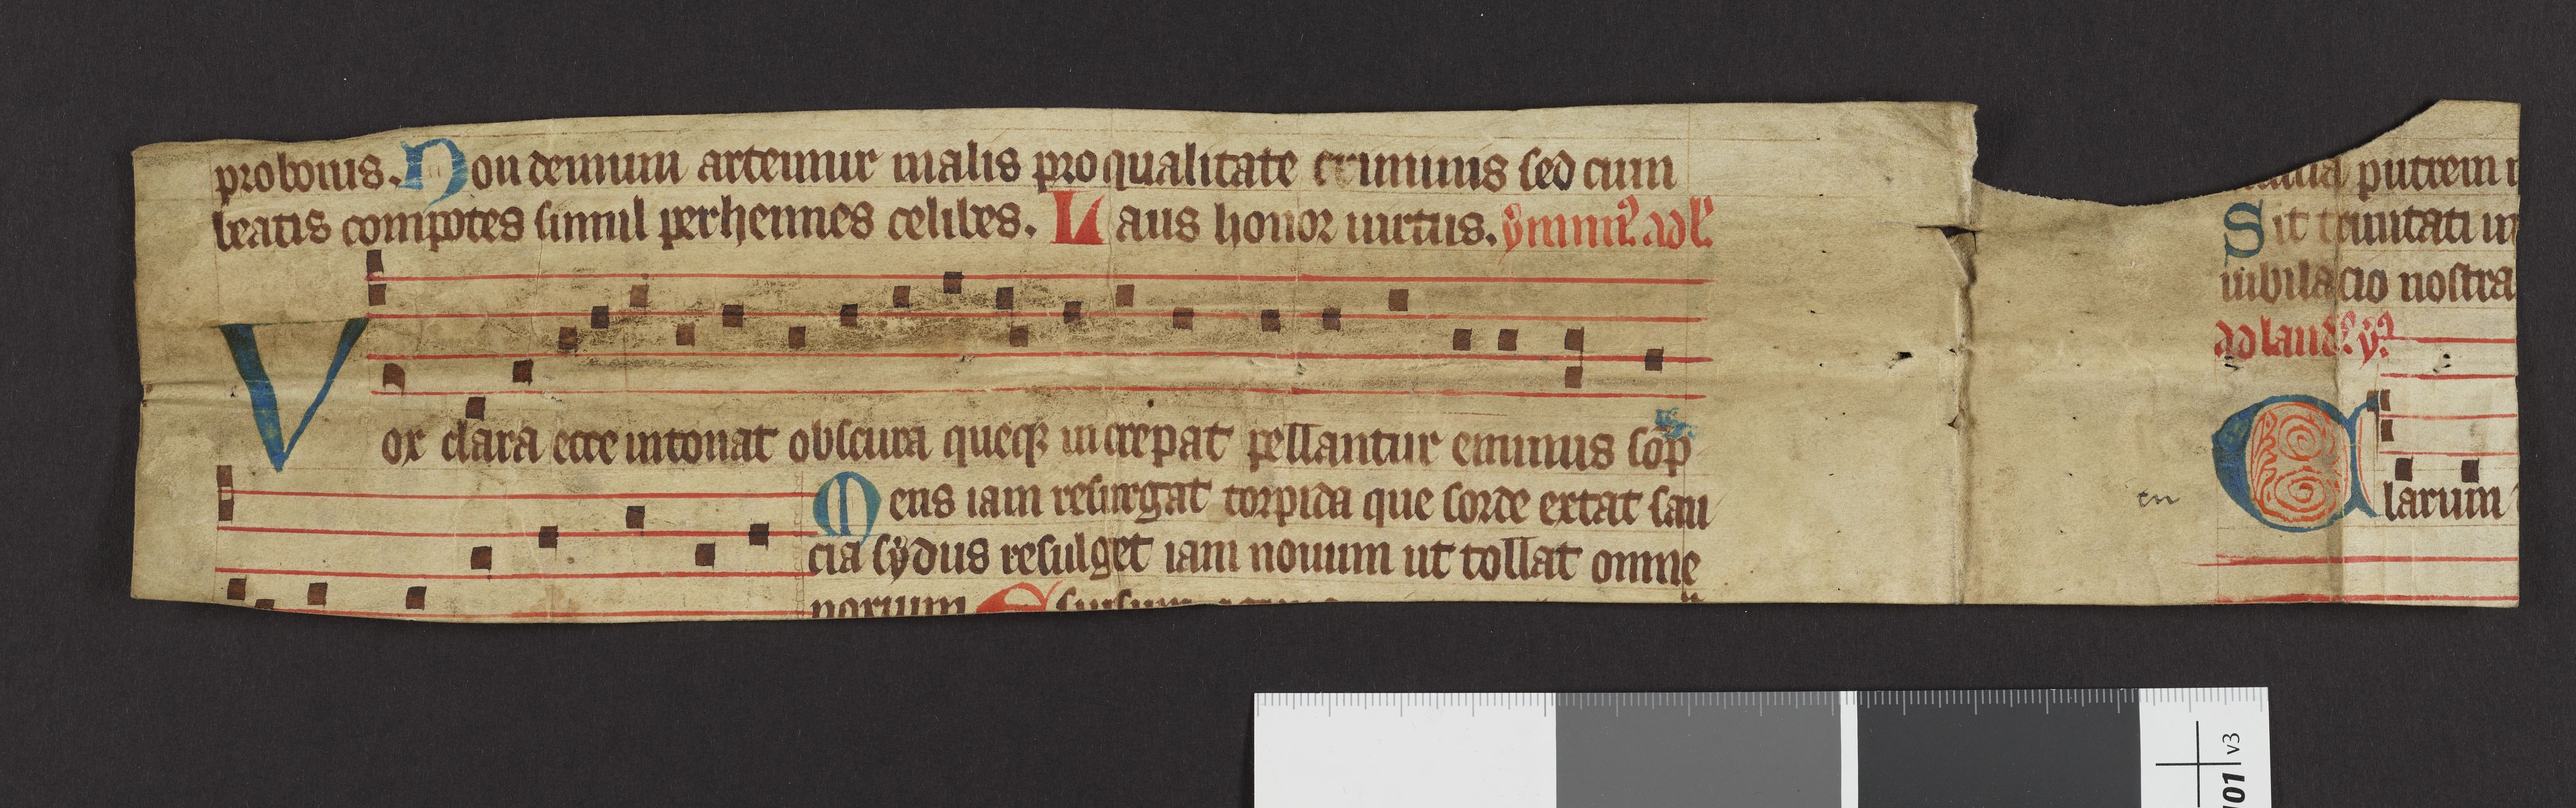 pro bonis. Non demum artemur malis pro qualitate criminis sed cum
beatis compotes simul perhennes celibes. Laus honor uirtus. ymnus ad l'.
Vox clara ecce intonat obscura queque increpat pellantur eminus sop
Mens iam resurgat torpida que sorde extat sau
cia sydus refulget iam nouum ut tollat omne
putrem
Sit trinitati
iubilacio nostra
ad laud' y'
Clarum
en
v3